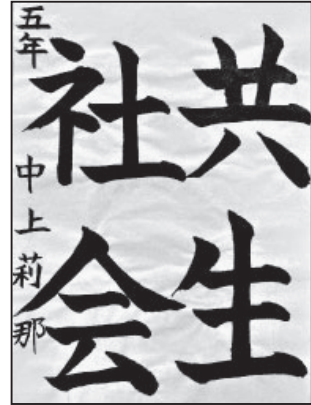 共生
社会
五年 中上莉那